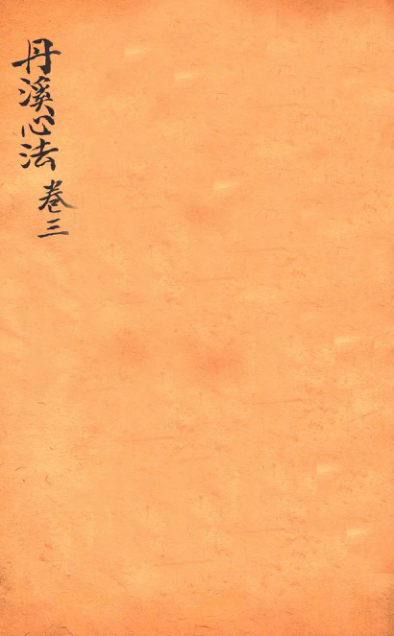 丹溪心法 卷三